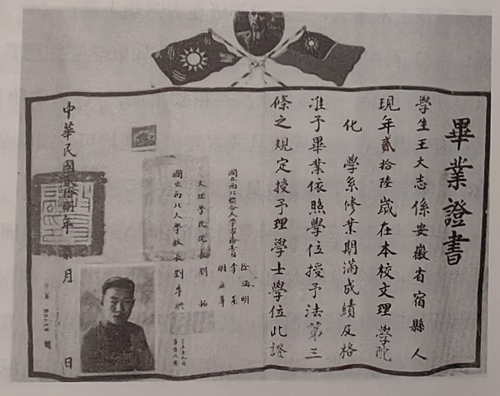 畢業證書
學生王大志係安徽省宿縣人
現年貳拾陸歲在本校文理學院
化學系修業期滿成績及格
准予畢業依照學位授予法第三
條之規定授予理學士學位此證
國立西北聯合大學常務委員
李蒸
徐誦明
胡庶華
文理學院院長劉拓
國立西北大學校長劉季洪
中華民國
年
月
日